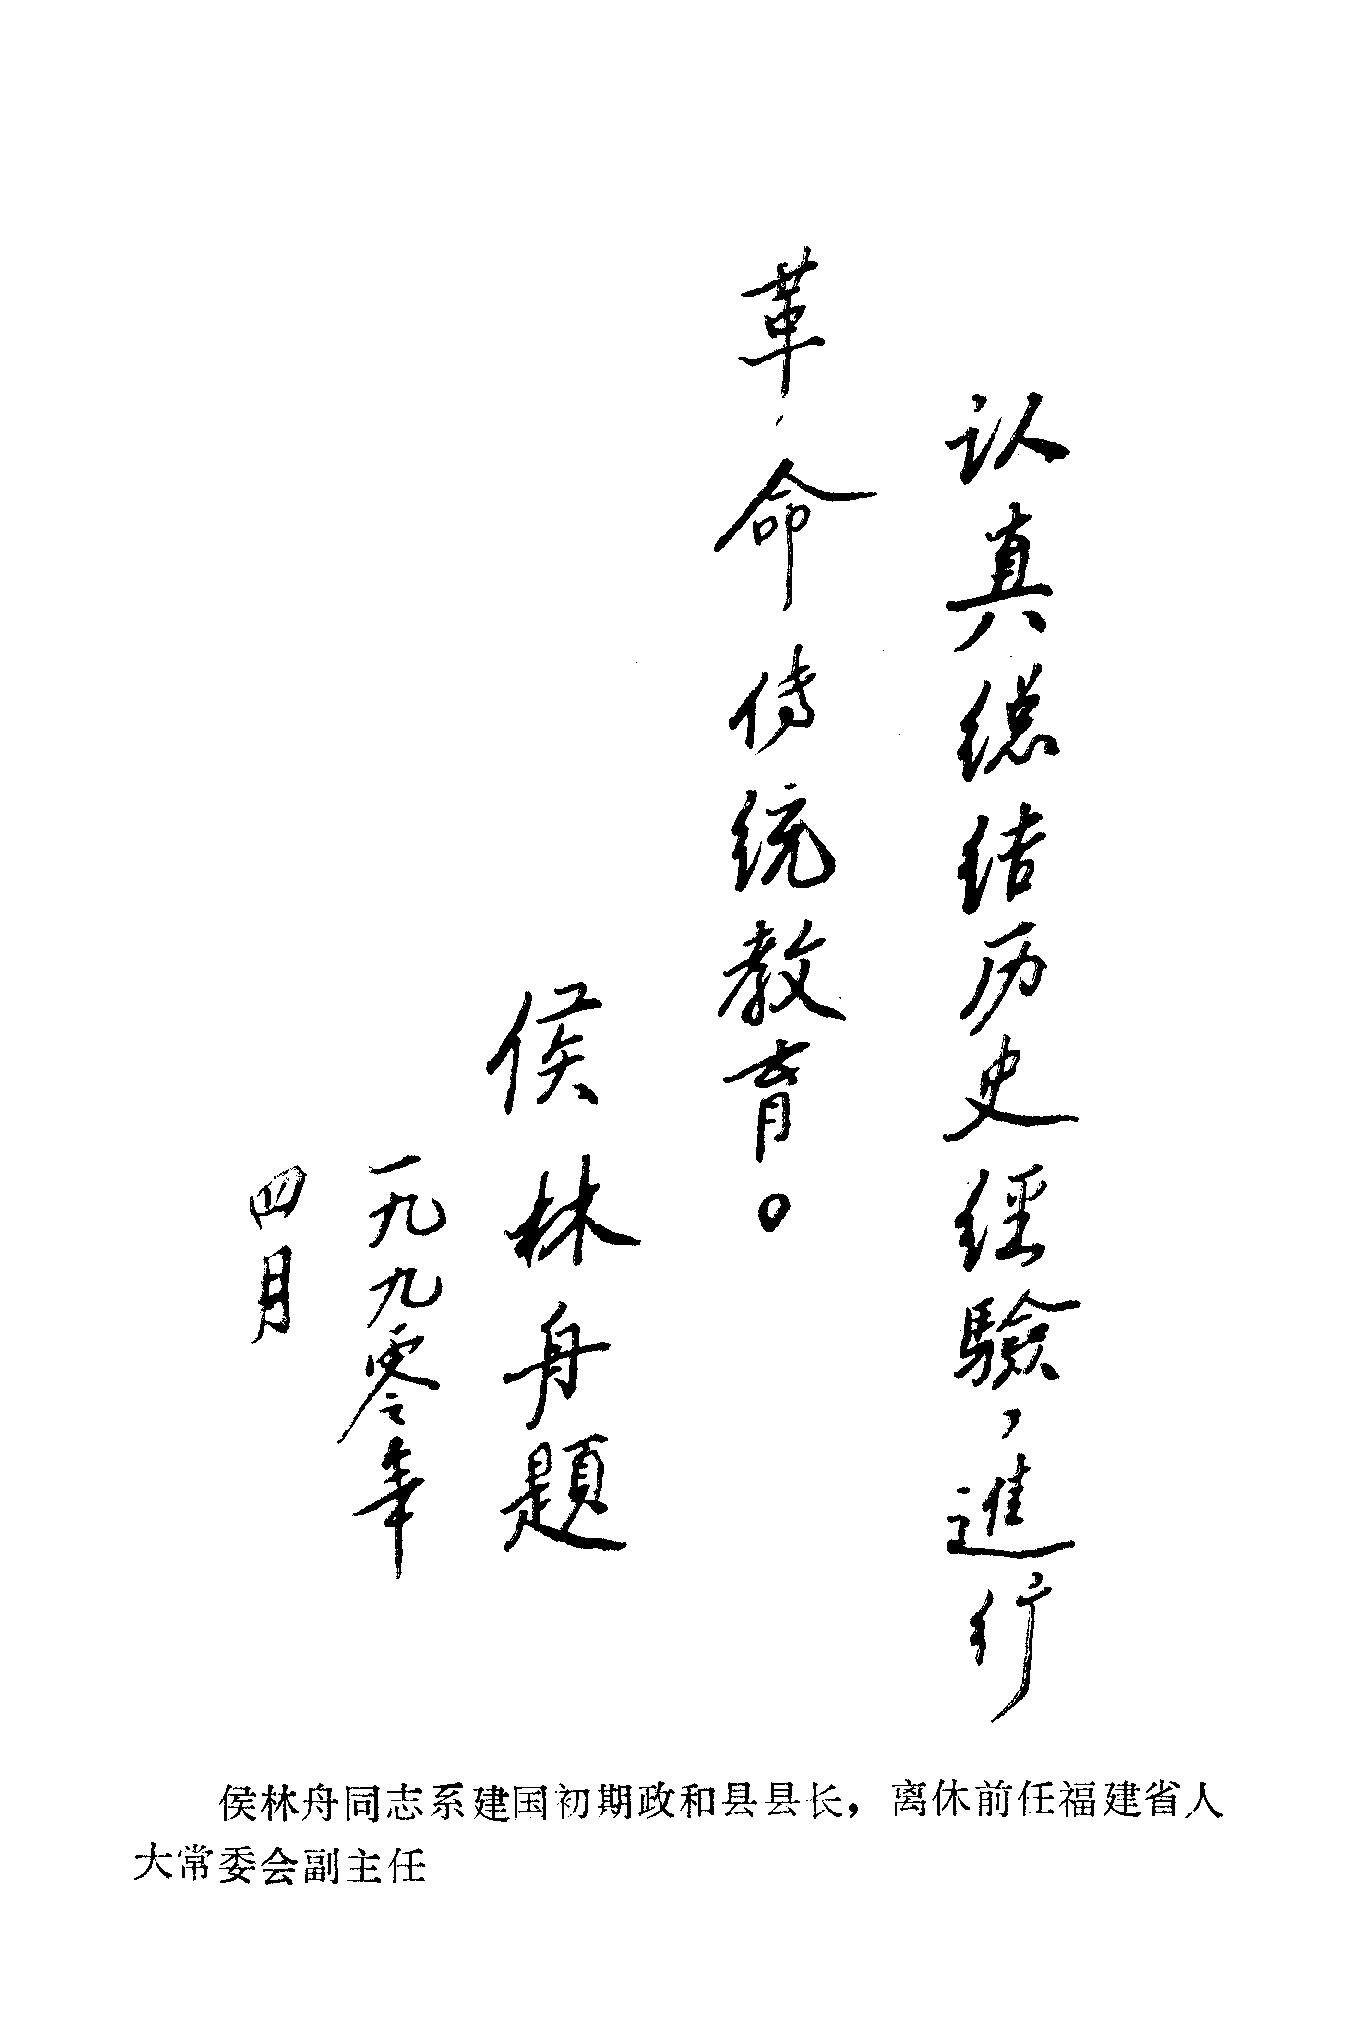 认真总结历史经驗，進行
革命传统教育。
侯林舟題
一九九零年
四月
侯林舟同志系建国初期政和县县长，离休前任福建省人
大常委会副主任